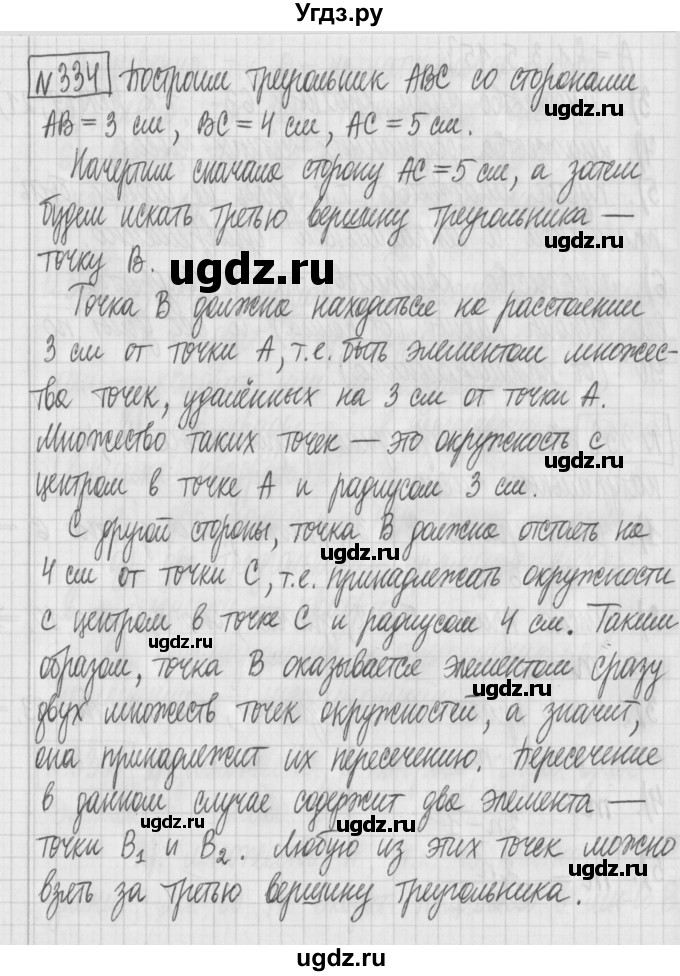 Угдз.ру
№334 Построим треугольник ABC со сторонами
ugdz.ru
AB = 3 см, BC = 4 см, AC = 5 см.
Начертим сначала сторону AC = 5 см, а затем
будем искать третью вершину треугольника —
ugdz.ru
точку B.
ugdz.ru
Точка B должна находиться на расстоянии
3 см от точки A, т.е. быть элементом множес-
ugdz.ru
тва точек, удалённых на 3 см от точки A.
Множество таких точек — это окружность с
ugdz.ru
центром в точке A и радиусом 3 см.
С другой стороны, точка B должна отстоять на
ugdz.ru
4 см от точки C, т.е. принадлежать окружности
с центром в точке C и радиусом 4 см. Таким
ugdz.ru
образом, точка B оказывается элементом сразу
ugdz.ru
двух множеств точек окружностей, а значит,
она принадлежит их пересечению. Пересечение
в данном случае содержит два элемента —
ugdz.ru
ugdz.ru
точки B₁ и B₂. Любую из этих точек можно
ugdz.ru
взять за третью вершину треугольника.
ugdz.ru